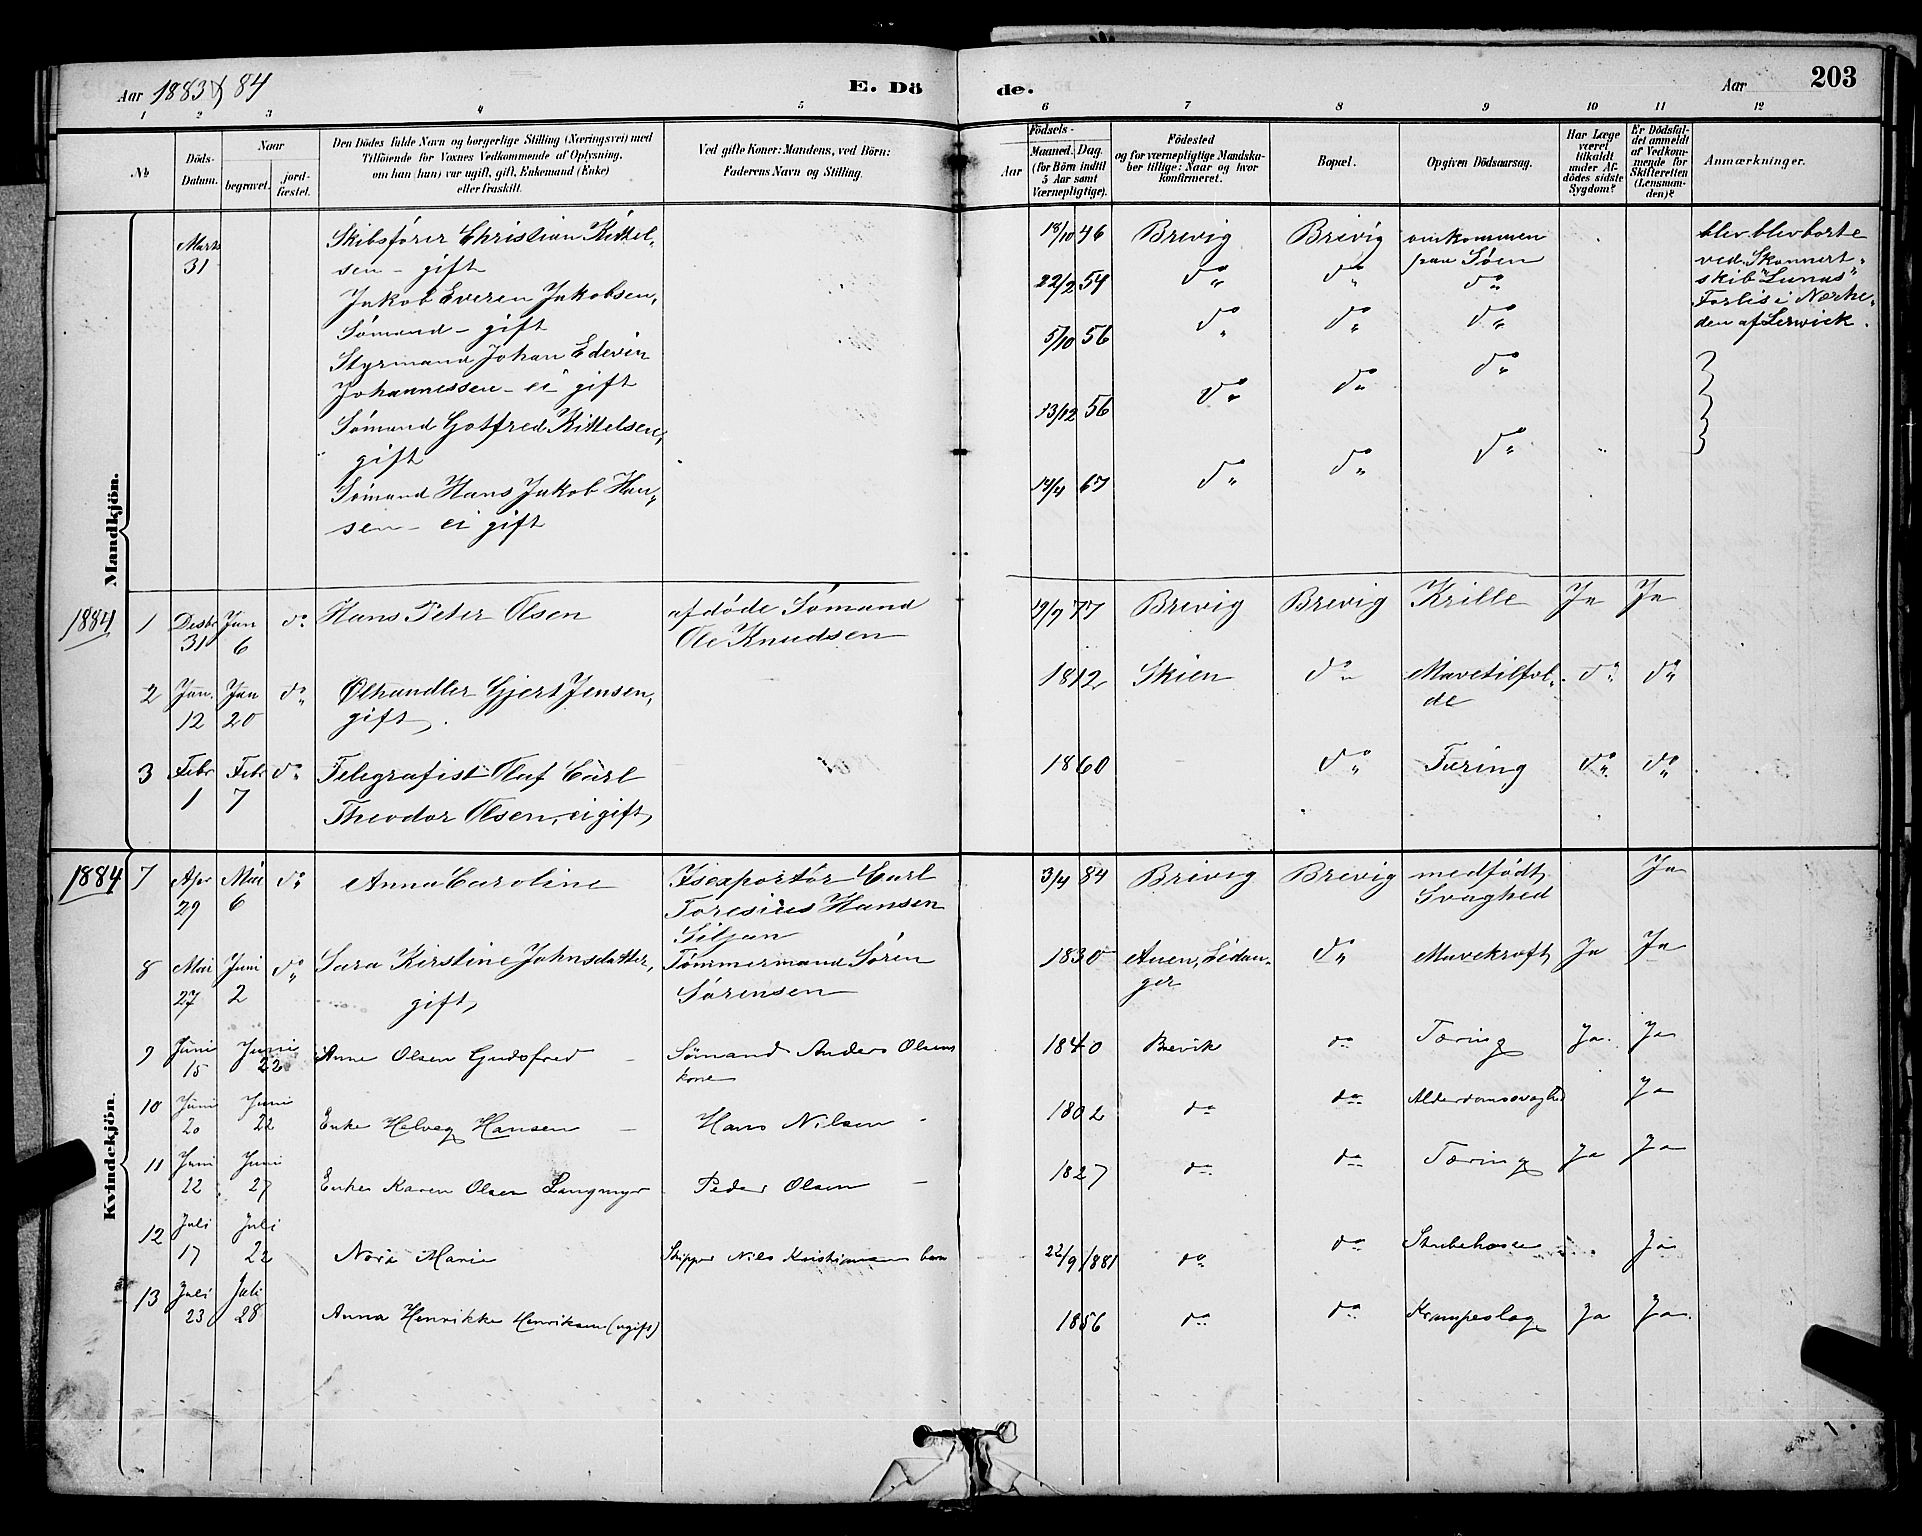 Aar 1883 & 84
E. Döde.
Aar
203
1 2 3 4 5 6 7 8 9 10 11 12
No
Döds-Datum.
Naar
begravet.
jordfæstet.
Den Dödes fulde Navn og borgerlige Stilling (Næringsvei) med
Tilföiende for Voxnes Vedkommende af Oplysning,
om han (hun) var ugift, gift, Enkemand (Enke)
eller fraskilt.
Ved gifte Koner: Mandens, ved Börn:
Faderens Navn og Stilling.
Födsels-
Aar
Maaned. Dag.
(for Börn indtil
5 Aar samt
Værnepligtige).
Födested
og for værnepligtige Mandskaber tillige: Naar og hvor
konfirmeret.
Bopæl.
Opgiven Dödsaarsag.
Har Læge
været
tilkaldt
under Afdödes sidste
Sygdom?
Er Dödsfaldet anmeldt
af Vedkommende for
Skifteretten
(Lensmanden)?
Anmærkninger.
Mandkjön.
Marts 31 Skibsfører Christian Kittelsen - gift 18/10 46 Brevig Brevig omkommen paa Søen
blev blev borte
ved Skonnertskib "Lunas"
Forlis i Nærheden af Lerwick.
Jakob Everen Jakobsen,
Sømand - gift 22/2 54 do do do
Styrmand Johan Edevin
Johannessen - ei gift 5/10 56 do do do
Sømand Gotfred Kittelsen,
gift 13/12 56 do do do
Sømand Hans Jakob Hansen - ei gift 14/4 67 do do do
1884 1 Desbr 31 Jan 6 do Hans Peter Olsen afdøde Sømand
Ole Knudsen 19/9 77 Brevig Brevig Krille Ja Ja
2 Jan. 12 Jan 20 do Ølhandler Gjert Jensen,
gift. 1812 Skien do Mavetilfælde do do
3 Febr 1 Febr 7 do Telegrafist Olaf Carl
Theodor Olsen, ei gift 1860 do Tæring do do
Kvindekjön.
1884 7 Apr 29 Mai 6 do Anna Caroline Isexportør Carl
Toresius Hansen
Siljan 3/4 84 Brevig Brevig medfødt
Svaghed Ja
8 Mai 27 Juni 2 do Sara Kirstine Johnsdatter,
gift, Tømmermand Søren
Sørensen 1830 Auen, Eidanger do Mavekræft Ja Ja
9 Juni 15 Juni 22 Anne Olsen Gudsfred - Sømand Anders Olsens
kone 1840 Brevik do Tæring Ja. Ja
10 Juni 20 Juni 22 Enke Helveg Hansen - Hans Nilsen - 1802 do do Alderdomssvaghed Ja
11 Juni 22 Juni 27 Enke Karen Olsen Langmyr Peder Olsen - 1827 do do Tæring Ja Ja
12 Juli 17 Juli 22 Nora Marie Skipper Nils Kristiansens barn 22/9 1881 do do Strubehoste Ja
13 Juli 23 Juli 28 Anna Henrikke Henriksen (ugift) 1856 do do Krampeslag Ja Ja.